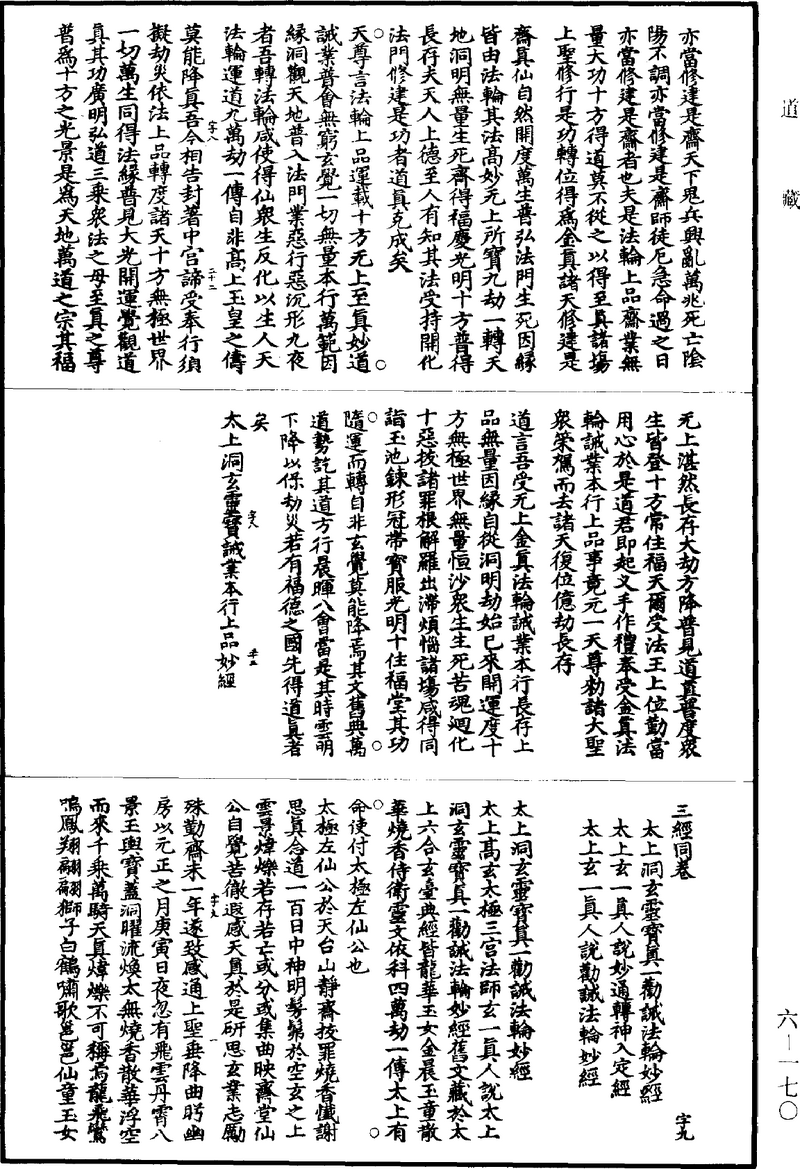 道藏
亦當修建是齋天下鬼兵興亂萬兆死亡陰
陽不調亦當修建是齋師徒厄急命過之日
亦當修建是齋者也夫是法輪上品齋業無
量大功十方得道莫不從之以得至真諸塲
上聖修行是功轉位得為金真諸天修建是
齋真仙自然開度萬生普弘法門生死因緣
皆由法輪其法高妙无上所寶九劫一轉天
地洞明無量生死齊得福慶光明十方普得
長存夫天人上德至人有知其法受持開化
法門修建是功者道真克成矣
天尊言法輪上品運載十方无上至真妙道
誡業普會無窮玄覺一切無量本行萬範因
緣洞觀天地普入法門業惡行惡沉形九夜
者吾轉法輪咸使得仙衆生反化以生人天
法輪運道九萬劫一傳自非高上玉皇之儔
莫能降真吾今相告封著中宮諦受奉行須
字八
十二
擬劫災依法上品轉度諸天十方無極世界
一切萬生同得法緣普見大光開運覺觀道
真其功廣明弘道三乘衆法之母至真之尊
普為十方之光景是為天地萬道之宗其福
无上湛然長存大劫方降普見道真普度衆
生皆登十方常住福天爾受法王上位勤當
用心於是道君即起叉手作禮奉受金真法
輪誡業本行上品事竟元一天尊勑諸大聖
衆榮駕而去諸天復位億劫長存
道言吾受无上金真法輪誡業本行長存上
品無量因緣自從洞明劫始已來開運度十
方無極世界無量恒沙衆生生死苦魂迴化
十惡拔諸罪根解羅出滯煩惱諸塲咸得同
詣玉池鍊形冠帶寶服光明十住福堂其功
隨運而轉自非玄覺莫能降焉其文舊典萬
道勢訖其道方行晨暉八會當是其時雲明
下降以保劫災若有福德之國先得道真者
矣
字八
十三
太上洞玄靈寶誡業本行上品妙經
三經同卷
字九
太上洞玄靈寶真一勸誡法輪妙經
太上玄一真人說妙通轉神入定經
太上玄一真人說勸誡法輪妙經
太上洞玄靈寶真一勸誡法輪妙經
太上高玄太極三宫法師玄一真人說太上
洞玄靈寶真一勸誡法輪妙經舊文藏於太
上六合玄臺典經皆龍華玉女金晨玉童散
華燒香侍衛靈文依科四萬劫一傳太上有
命使付太極左仙公也
太極左仙公於天台山靜齋拔罪燒香懴謝
思真念道一百日中神明髣髴於空玄之上
雲景煒爍若存若亡或分或集曲映齋堂仙
公自覺苦徹遐感天真於是研思玄業志勵
殊勤齋未一年遂致感通上聖垂降曲眄幽
房以元正之月庚寅日夜忽有飛雲丹霄八
景玉輿寶蓋洞曜流煥太無燒香散華浮空
而來千乘萬騎天真煒爍不可稱焉龍飛鸞
鳴鳳翔翩翩獅子白鶴嘯歌邕邕仙童玉女
六—一七〇